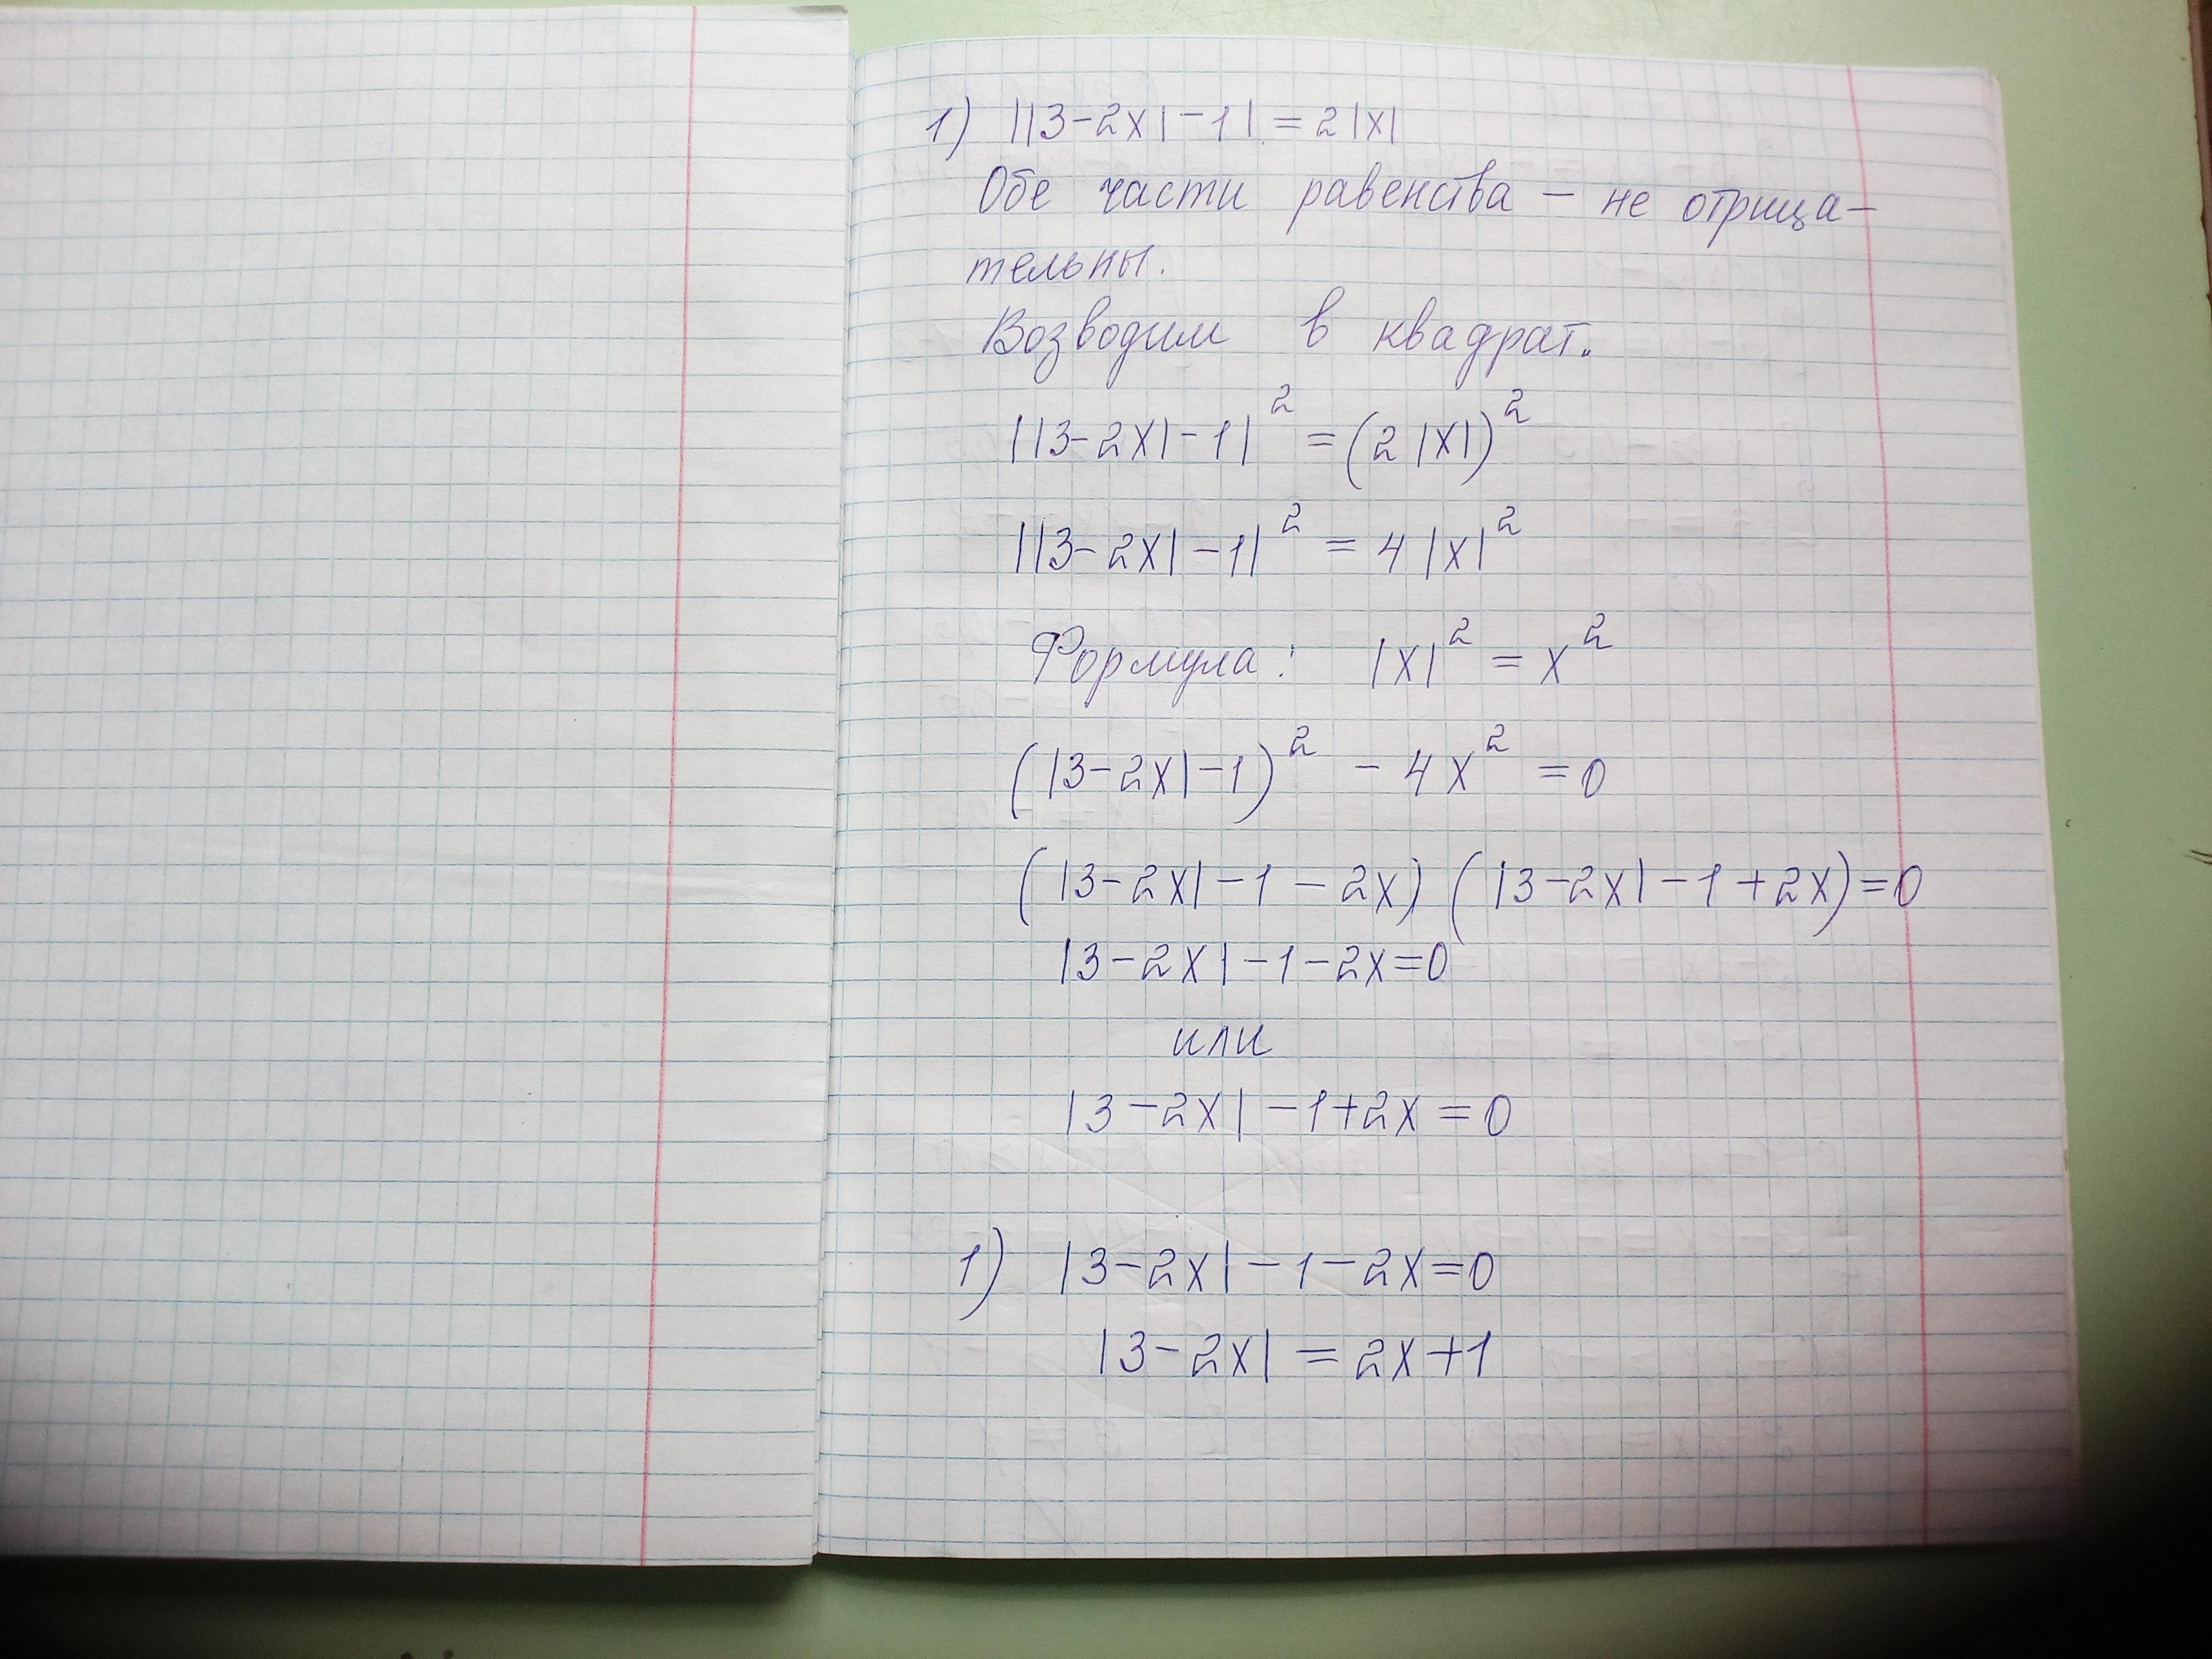 1) ||3-2x|-1| = 2|x|
Обе части равенства — не отрица-
тельны.
Возводим в квадрат.
||3-2x|-1|² = (2|x|)²
||3-2x|-1|² = 4|x|²
Формула: |x|² = x²
(|3-2x|-1)² - 4x² = 0
(|3-2x|-1-2x)(|3-2x|-1+2x)=0
|3-2x|-1-2x=0
или
|3-2x|-1+2x=0
1) |3-2x|-1-2x=0
|3-2x| = 2x+1